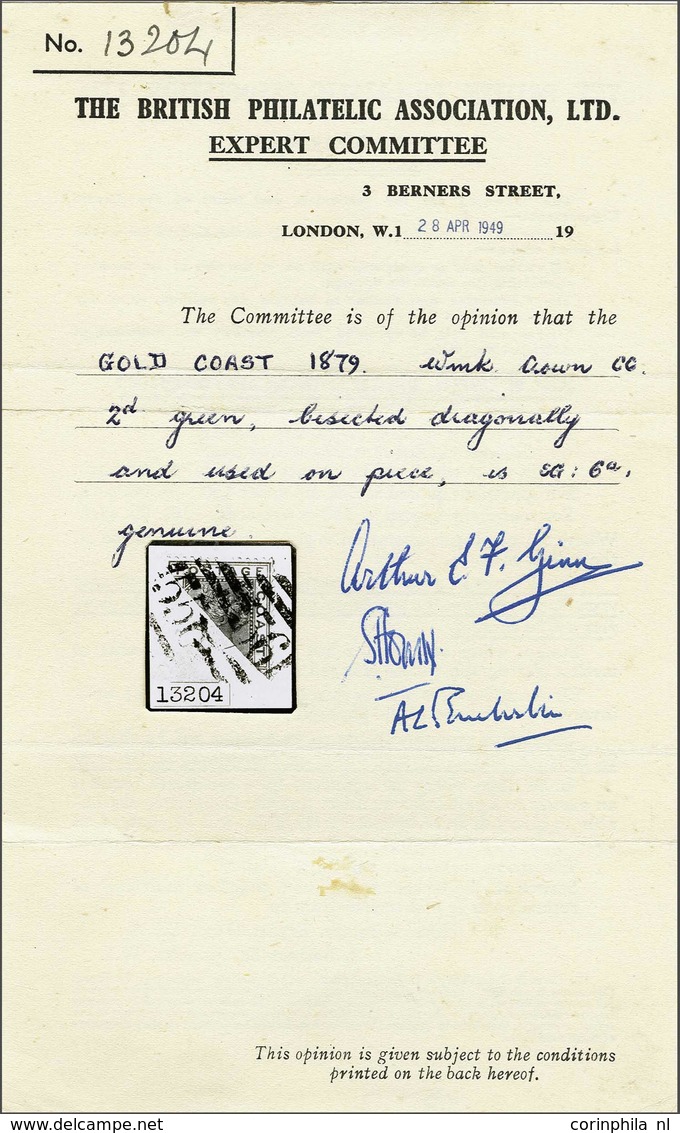 No. 13204
THE BRITISH PHILATELIC ASSOCIATION, LTD.
EXPERT COMMITTEE
3 BERNERS STREET,
LONDON, W.1 28 APR 1949 19
The Committee is of the opinion that the
GOLD COAST 1879. Wmk Crown CC.
2d green, bisected diagonally
and used on piece, is SG: 6a,
genuine.
Arthur E. F. Ginn
POSTAGE
COAST
13204
This opinion is given subject to the conditions
printed on the back hereof.
Delcampe.net
corinphila nl